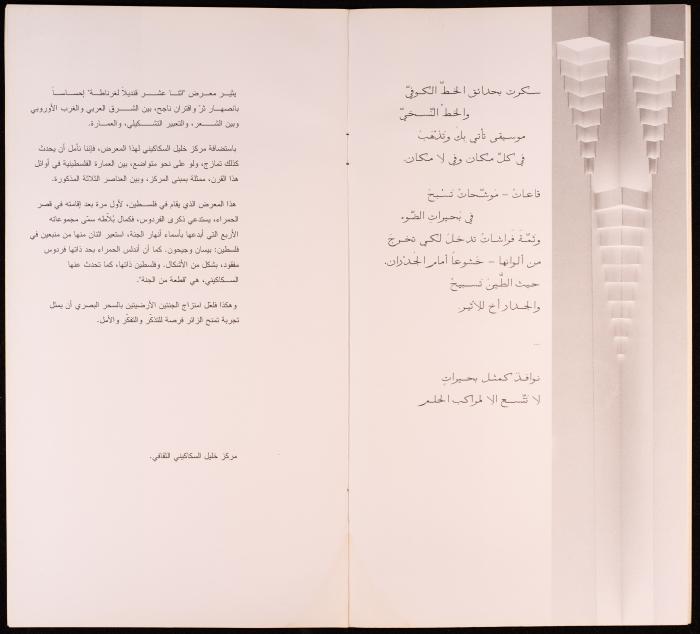 سكرت بحدائق الخطّ الكوفيّ
والخطّ النّسخيّ
موسيقى تأتي بك وتذهَبُ
في كلّ مكان وفي لا مكان.
قاعاتٌ – موشّحاتٌ تسبحُ
في بُحيراتِ الضّوء
وثمّةَ فراشاتٌ تدخلُ لكي تخرجَ
من ألوانها – خشوعاً أمام الجُدْران.
حيث الطّينُ تسبيحٌ
والجدار أخٌ للأثير.
...
نوافذُ كمثل بحيراتٍ
لا تتّسع إلا لمراكب الحلم
يثير معرض "اثنا عشر قنديلاً لغرناطة" إحساساً
بانصهار ثرّ واقتران ناجح، بين الشرق العربي والغرب الأوروبي
وبين الشعر، والتعبير التشكيلي، والعمارة.
باستضافة مركز خليل السكاكيني لهذا المعرض، فإننا نأمل أن يحدث
كذلك تمازج، ولو على نحو متواضع، بين العمارة الفلسطينية في أوائل
هذا القرن، ممثلة بمبنى المركز، وبين العناصر الثلاثة المذكورة.
هذا المعرض الذي يقام في فلسطين، لأول مرة بعد إقامته في قصر
الحمراء، يستدعي ذكرى الفردوس، فكمال بُلاّطه سمّى مجموعاته
الأربع التي أبدعها بأسماء أنهار الجنة، استعير اثنان منها من منبعين في
فلسطين: بيسان وجيحون. كما أن أندلس الحمراء بحد ذاتها فردوس
مفقود، بشكل من الأشكال. وفلسطين ذاتها، كما تحدث عنها
السكاكيني، هي "قطعة من الجنة".
وهكذا فلعّل امتزاج الجنتين الأرضيتين بالسحر البصري أن يمثل
تجربة تمنح الزائر فرصة للتذكّر والتفكّر والأمل.
مركز خليل السكاكيني الثقافي.